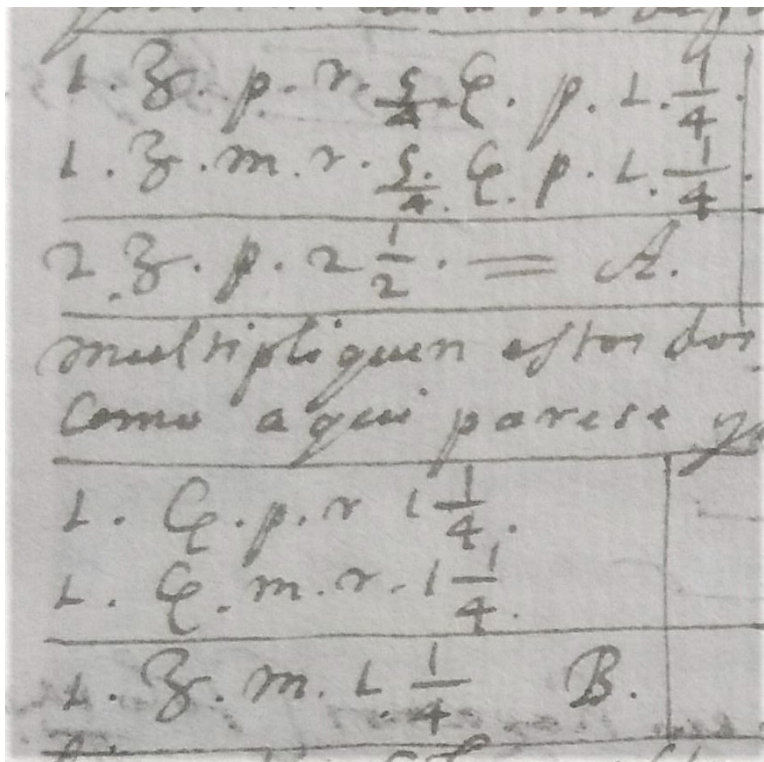 1. ʒ. p. r. 5/4. ꝗ. p. 1. 1/4.
1. ʒ. m. r. 5/4. ꝗ. p. 1. 1/4.
2. ʒ. p. 2 1/2. = A.
multipliquen estos dos
como aqui parese
1. ꝗ. p. r 1 1/4.
1. ꝗ. m. r. 1 1/4.
1. ʒ. m. 1. 1/4 B.